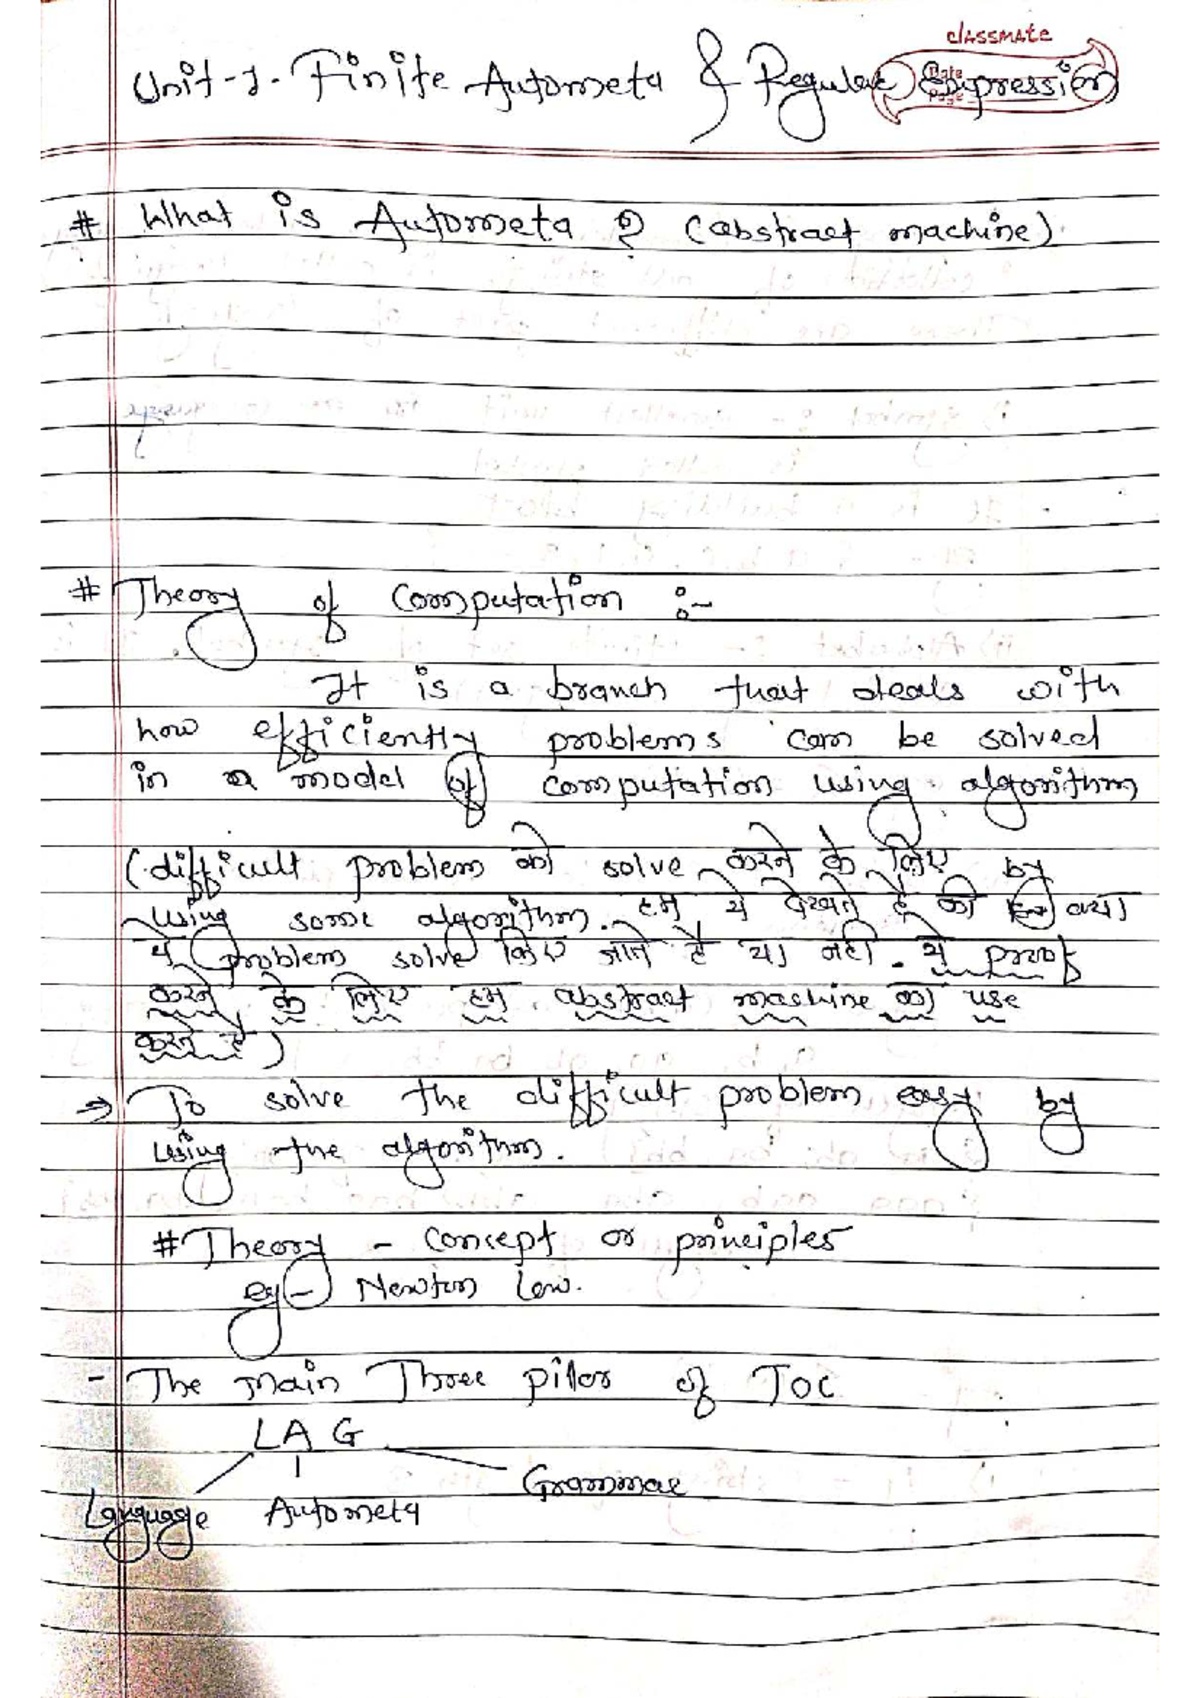 classmate
Date
Page
Unit-1. Finite Autometa & Regular Expression
# What is Autometa ? (abstract machine)
# Theory of Computation :-
It is a branch that deals with
how efficiently problems can be solved
in a model of computation using algorithm
(difficult problem को solve करने के लिए by
using some algorithm. हम ये देखते है की क्या
ये problem solve किए जाते है या नही. ये proof
करने के लिए हम abstract machine का use
करते है)
→ To solve the difficult problem easy by
using the algorithm.
# Theory - concept or principles
eg - Newton Law.
- The main Three pilor of TOC
LAG
Grammar
Language Autometa